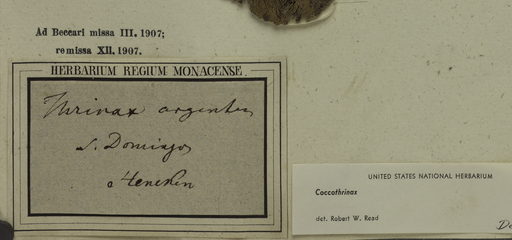 Ad Beccari missa III. 1907;
remissa XII. 1907.
HERBARIUM REGIUM MONACENSE.
Thrinax argentea
S. Domingo
UNITED STATES NATIONAL HERBARIUM
Coccothrinax
det. Robert W. Read